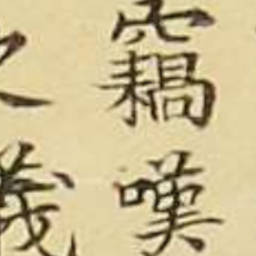 竊嘆
之義